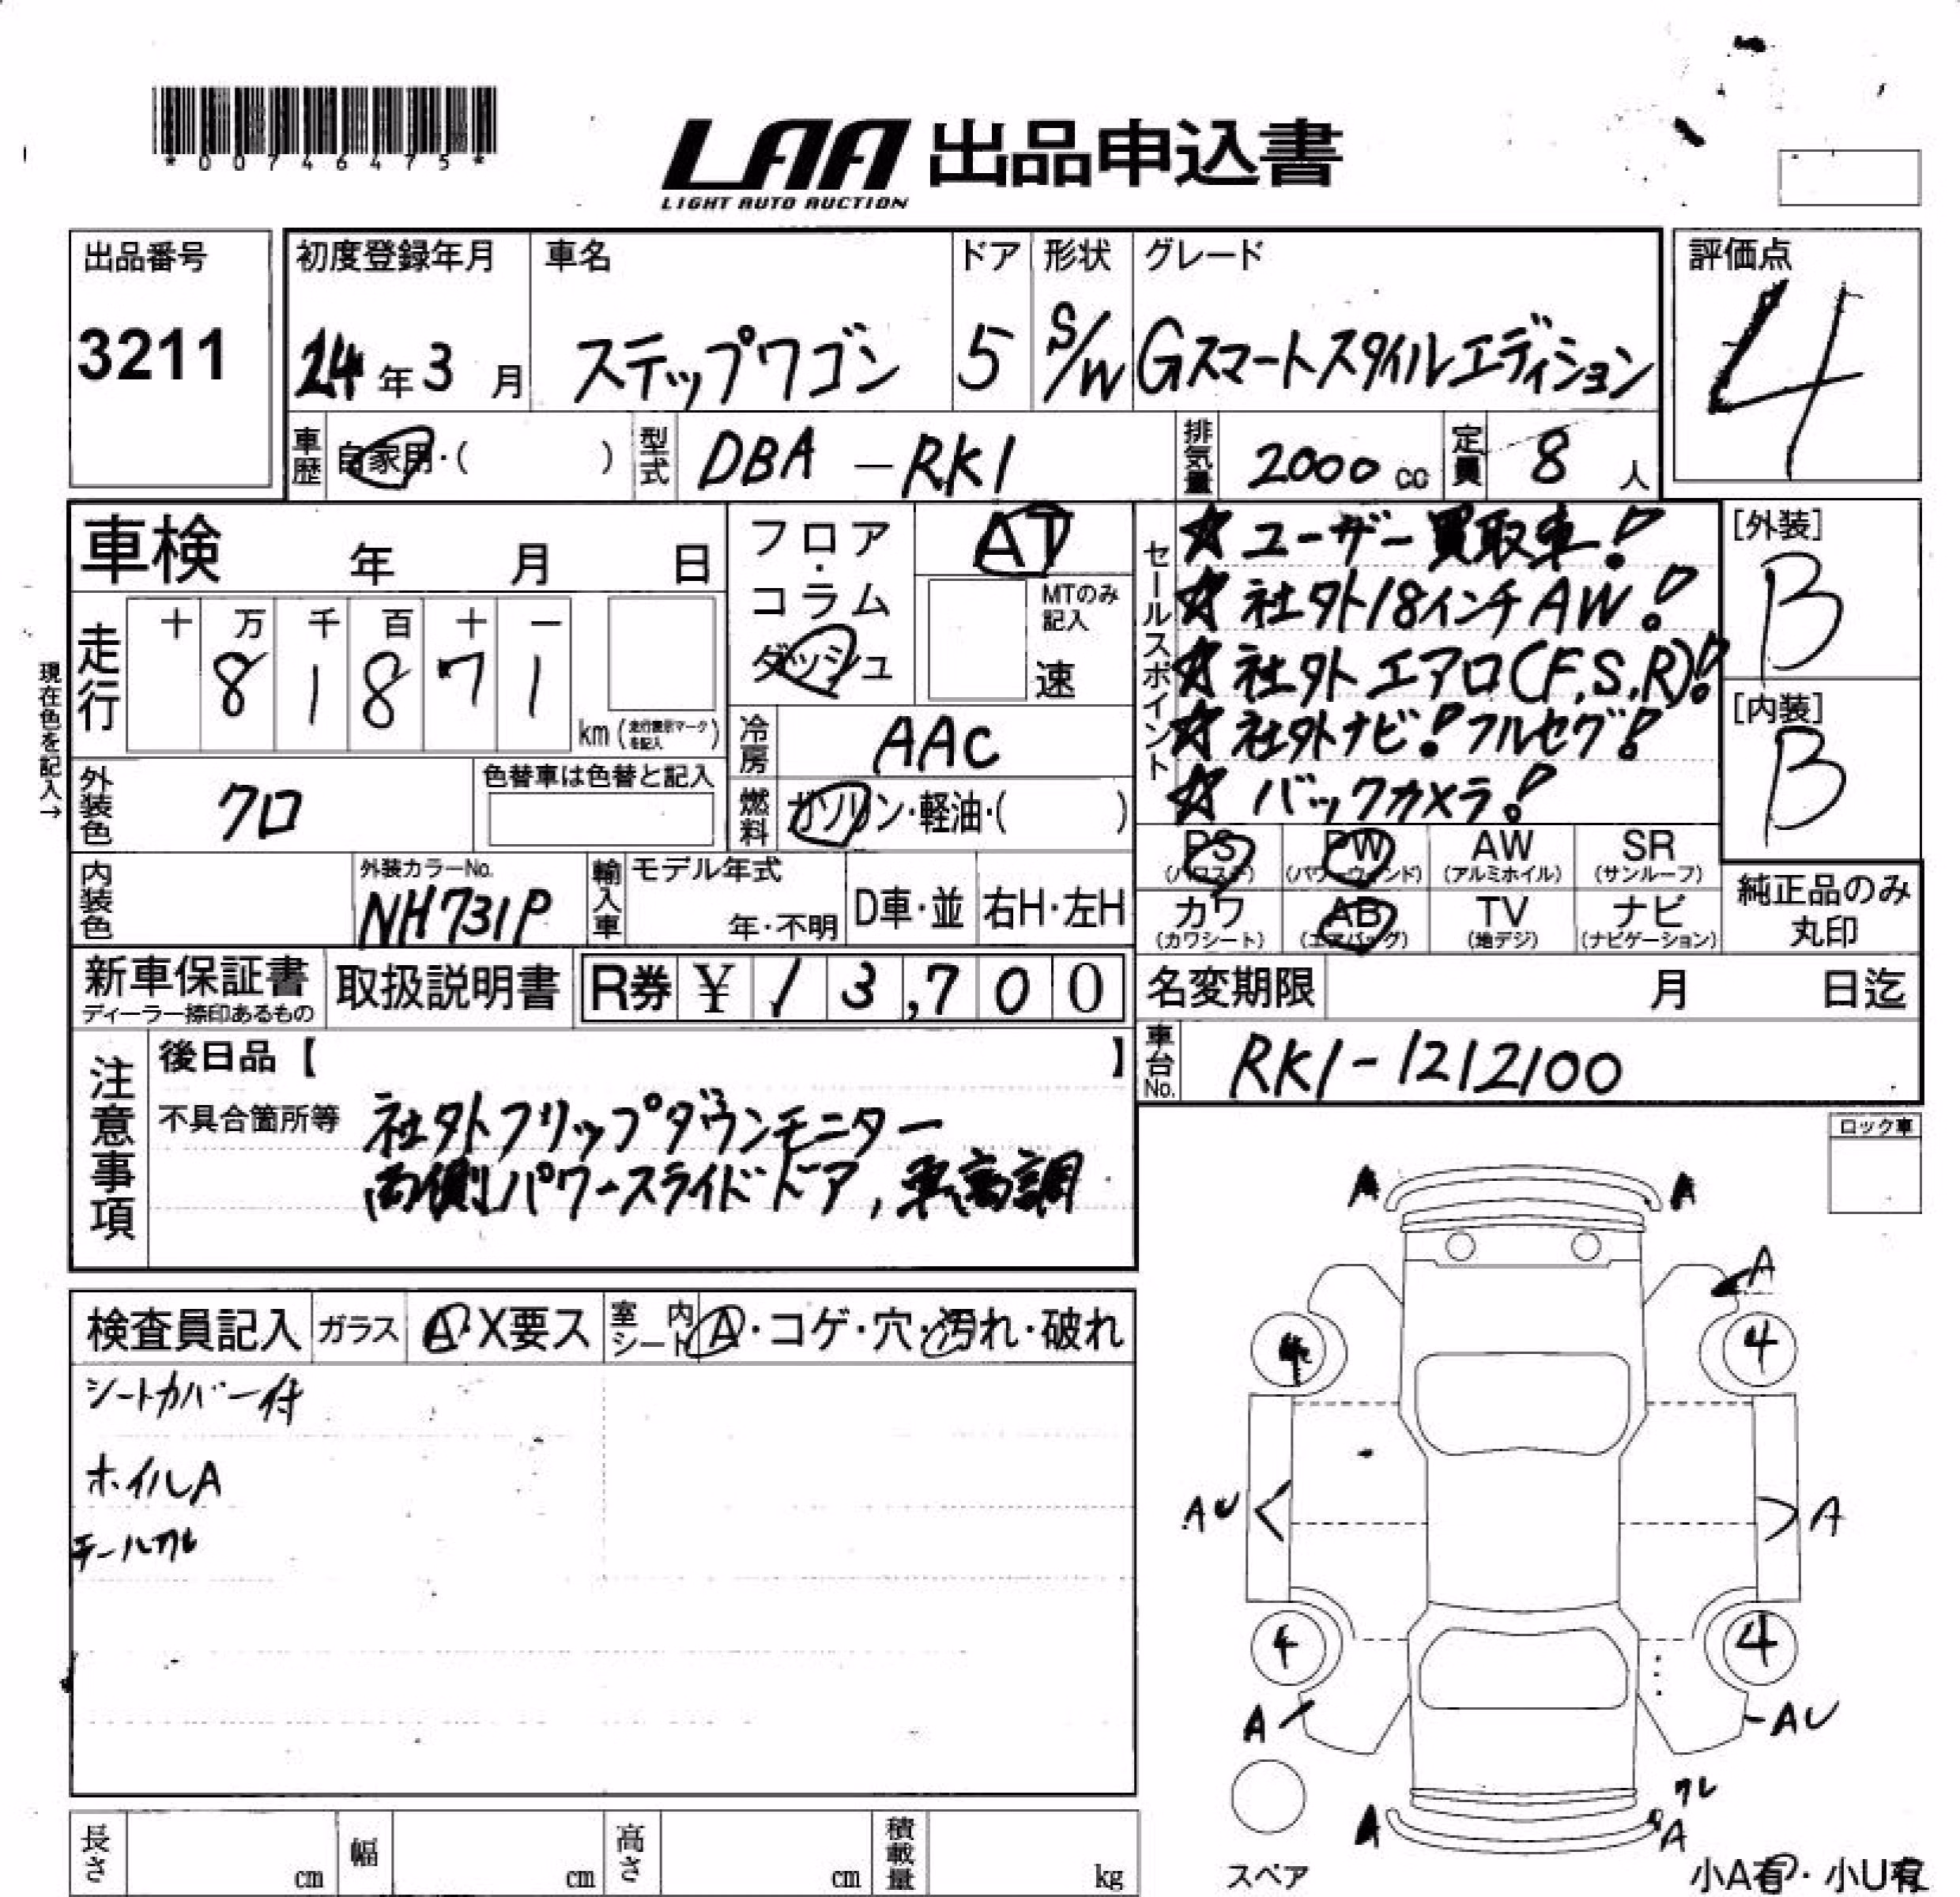 *00746475*
LAA 出品申込書
LIGHT AUTO AUCTION
出品番号
3211
初度登録年月
24年3月
車名
ステップワゴン
ドア
5
形状
S/W
グレード
Gスマートスタイルエディション
評価点
4
車歴
自家用・( )
型式
DBA-RK1
排気量
2000 cc
定員
8 人
車検 年 月 日
フロア・コラム
ダッシュ
AT
MTのみ記入
速
セールスポイント
☆ユーザー買取車!
☆社外18インチAW!
☆社外エアロ(F,S,R)!
☆社外ナビ!フルセグ!
☆バックカメラ!
[外装]
B
[内装]
B
現在色を記入→
走行
十 万 千 百 十 一
8 1 8 7 1
km(走行表示マークを記入)
冷房
AAC
外装色
クロ
色替車は色替と記入
燃料
ガソリン・軽油・( )
内装色
外装カラーNo.
NH731P
輸入車
モデル年式
年・不明
D車・並
右H・左H
PS
(パワステ)
PW
(パワーウィンド)
AW
(アルミホイル)
SR
(サンルーフ)
カワ
(カワシート)
AB
(エアバッグ)
TV
(地デジ)
ナビ
(ナビゲーション)
純正品のみ
丸印
新車保証書
ディーラー捺印あるもの
取扱説明書
R券 ¥13,700
名変期限 月 日迄
車台No.
RK1-1212100
注意事項
後日品【 】
不具合箇所等
社外フリップダウンモニター
両側パワースライドドア,車高調
ロック車
検査員記入
ガラス
A・X要ス
室内シート
A・コゲ・穴・汚れ・破れ
シートカバー付
ホイルA
テールワレ
A A
A
4 4
AU A
4 4
A AU
ワレ
A A
スペア
小A有・小U有
長さ cm
幅 cm
高さ cm
積載量 kg